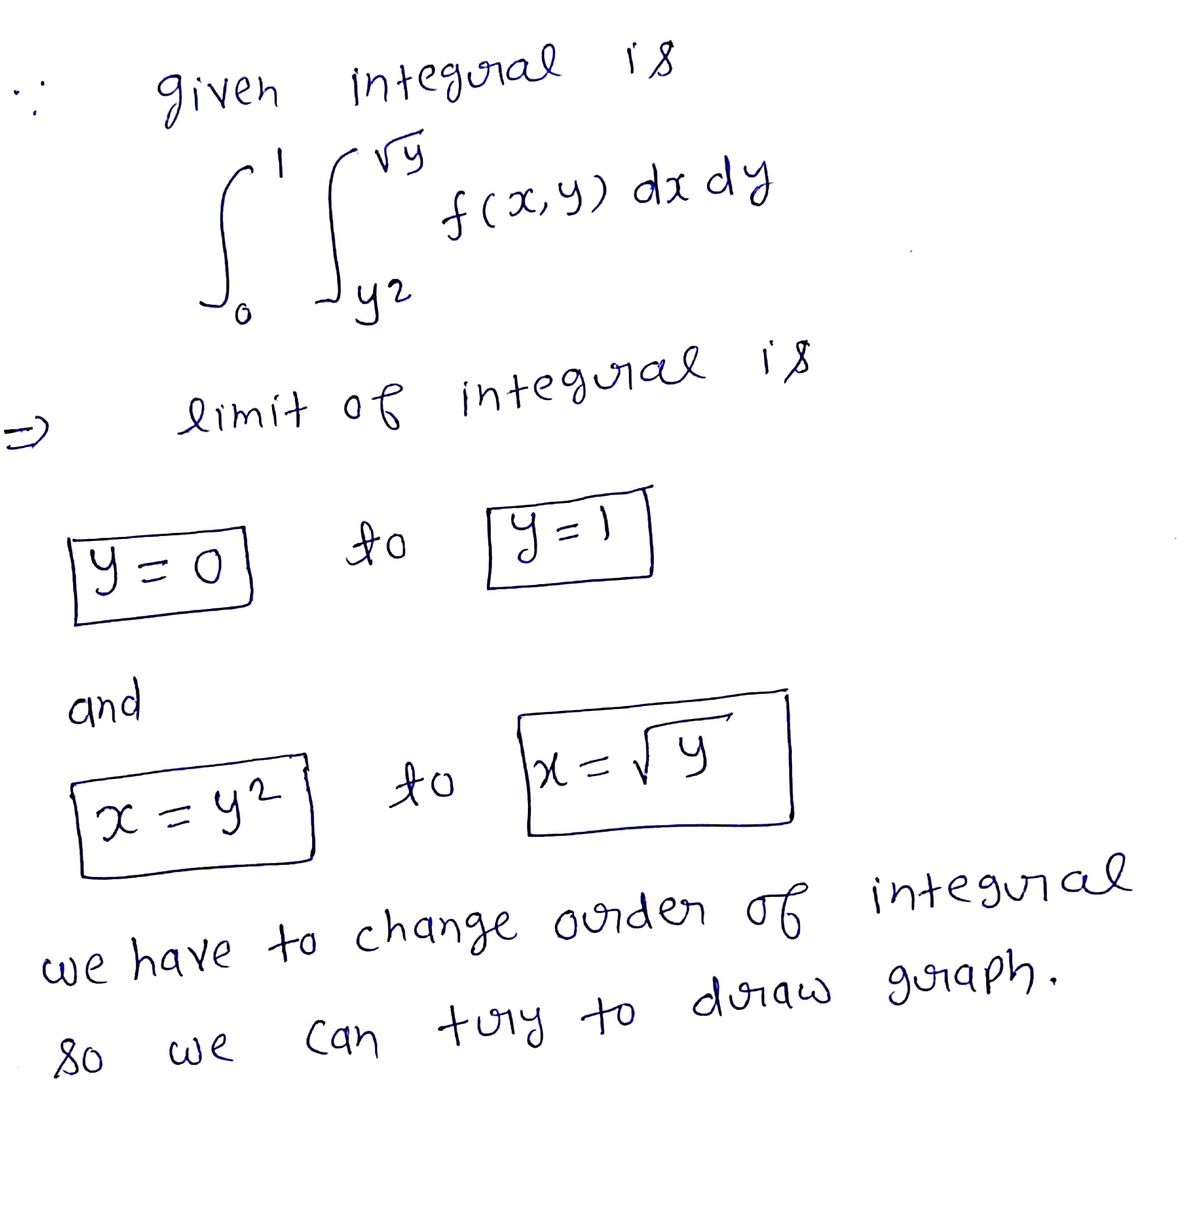 ∵ given integral is
∫₀¹ ∫_{y²}^{√y} f(x,y) dx dy
⇒ limit of integral is
y = 0 to y = 1
and
x = y² to x = √y
we have to change order of integral
so we can try to draw graph.